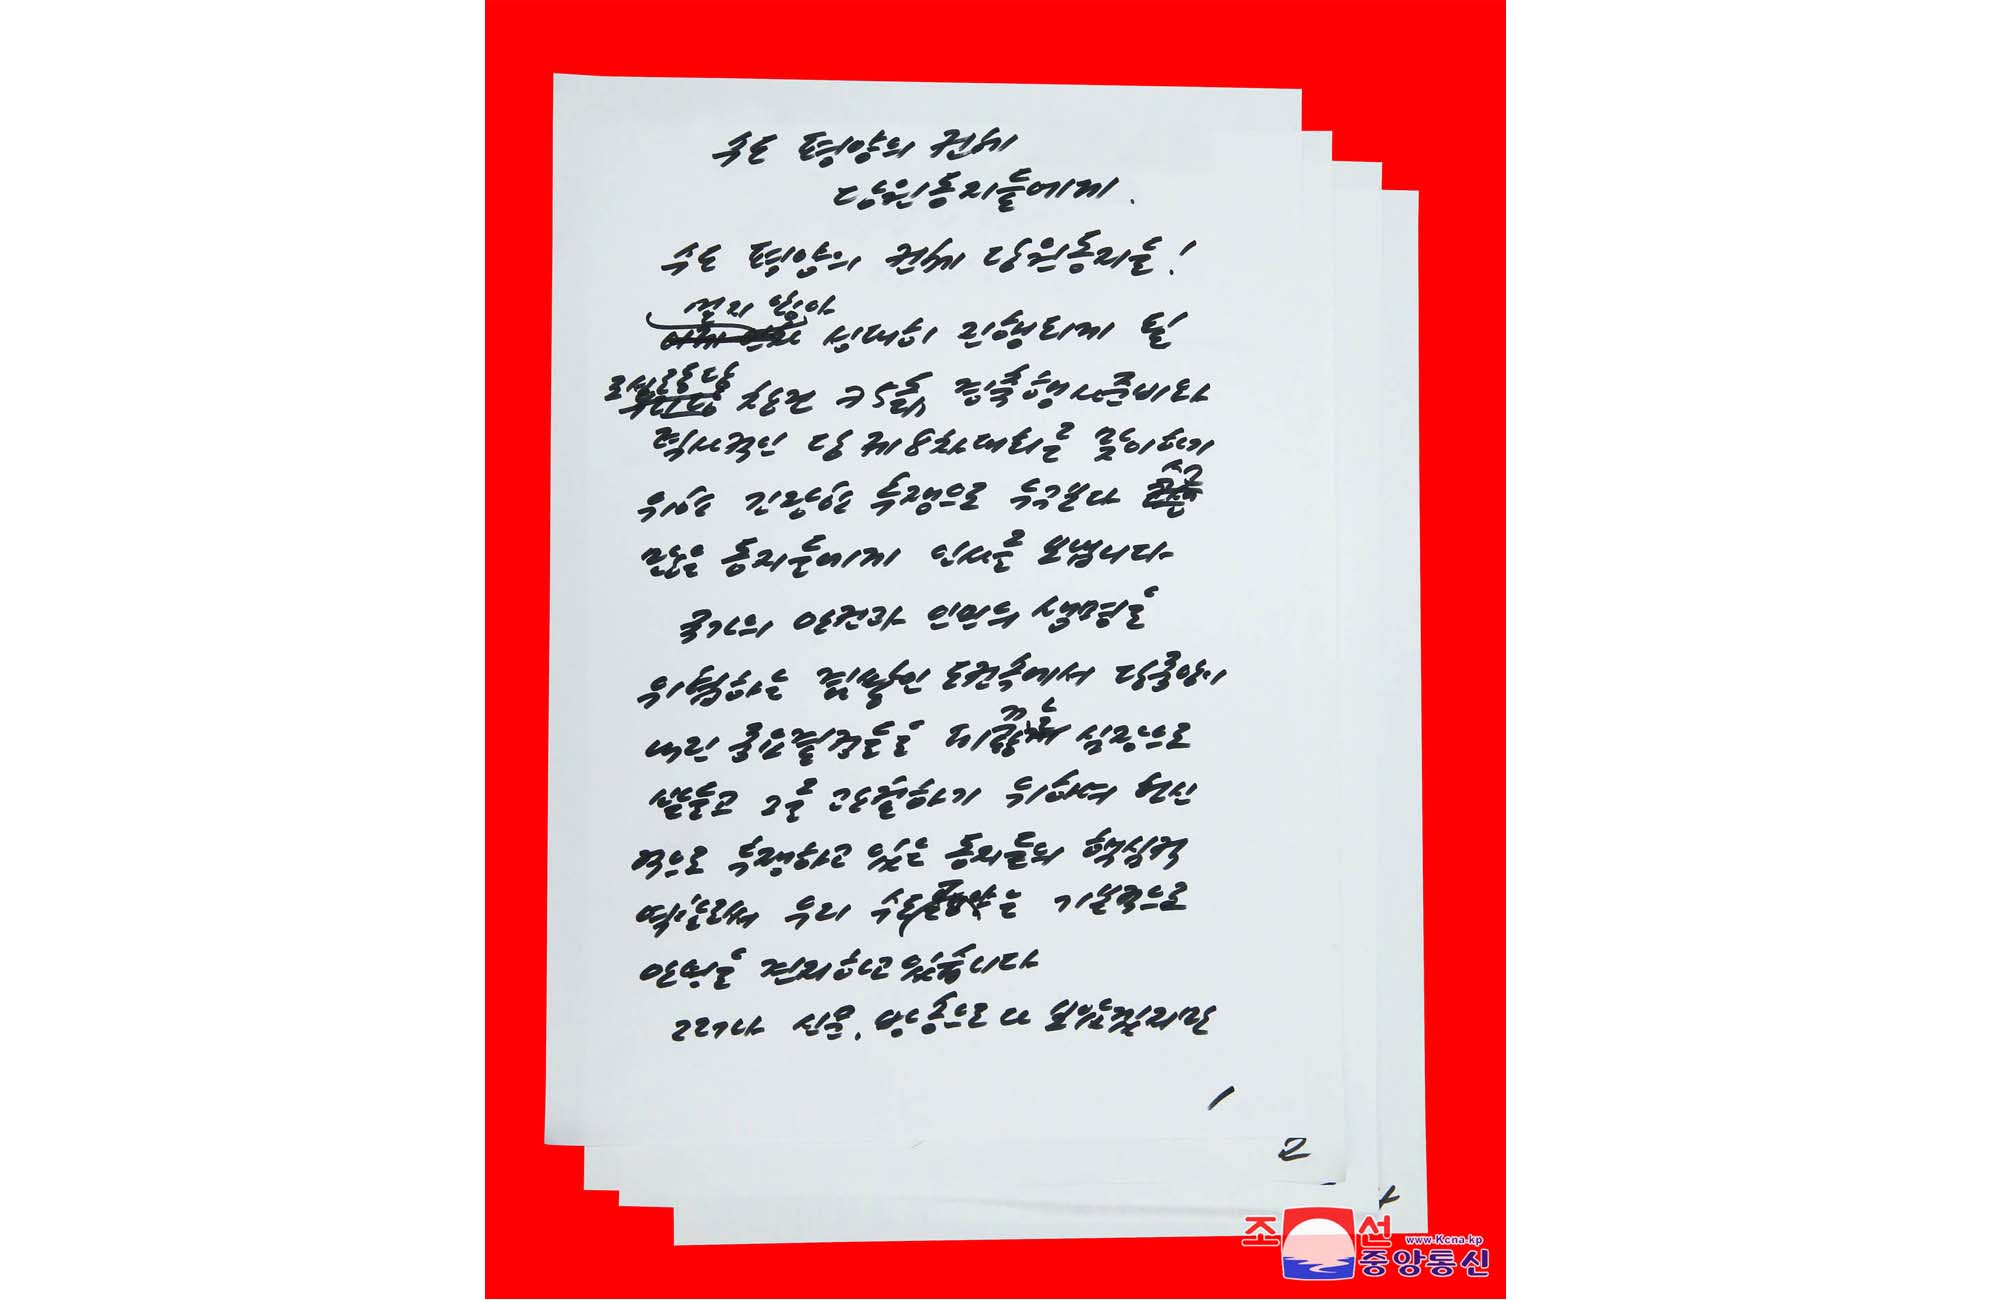 수도 평양의 전체
당원동지들에게.
수도 평양의 전체 당원동지들!
멀지 않아
성대히 진행되게 될
조선로동당
창건 75돐 경축행사준비와
력사적인 당 제8차대회를 맞이하기
위한 긴장한 투쟁으로 누구보다 수고
많은 동지들에게 인사를 보냅니다
국가의 안전과 인민의 생명을
위협하는 겹쌓인 도전속에서 당중앙이
내린 중요결정들을 심장으로
받들고 그를 관철하기 위하여 헌신
적으로 투쟁하고 있는 동지들의 핵심적
역할로해서 우리 기본적으로
안정을 견지하고 있습니다
그러나 신문, 방송으로 다 보았겠지만
1
2
조선
www.Kcna.kp
중앙통신